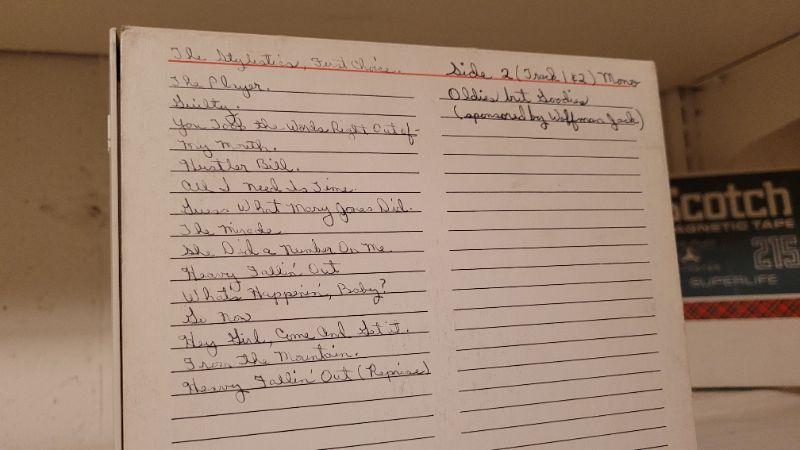 The Stylistics, First Choice.
The Player.
Guilty.
You Took the Words Right Out of
My Mouth.
Hustler Bill.
All I Need Is Time.
Guess What Mary Jones Did.
The Miracle
She Did a Number On Me
Heavy Fallin' Out
What's Happenin', Baby?
Go Now
Hey Girl, Come And Get it.
From the Mountain.
Heavy Fallin' Out (Reprise)
Side 2 (Track 1 & 2) Mono
Oldies but Goodies
(sponsored by Wolfman Jack)
Scotch
MAGNETIC TAPE
215
SUPERLIFE